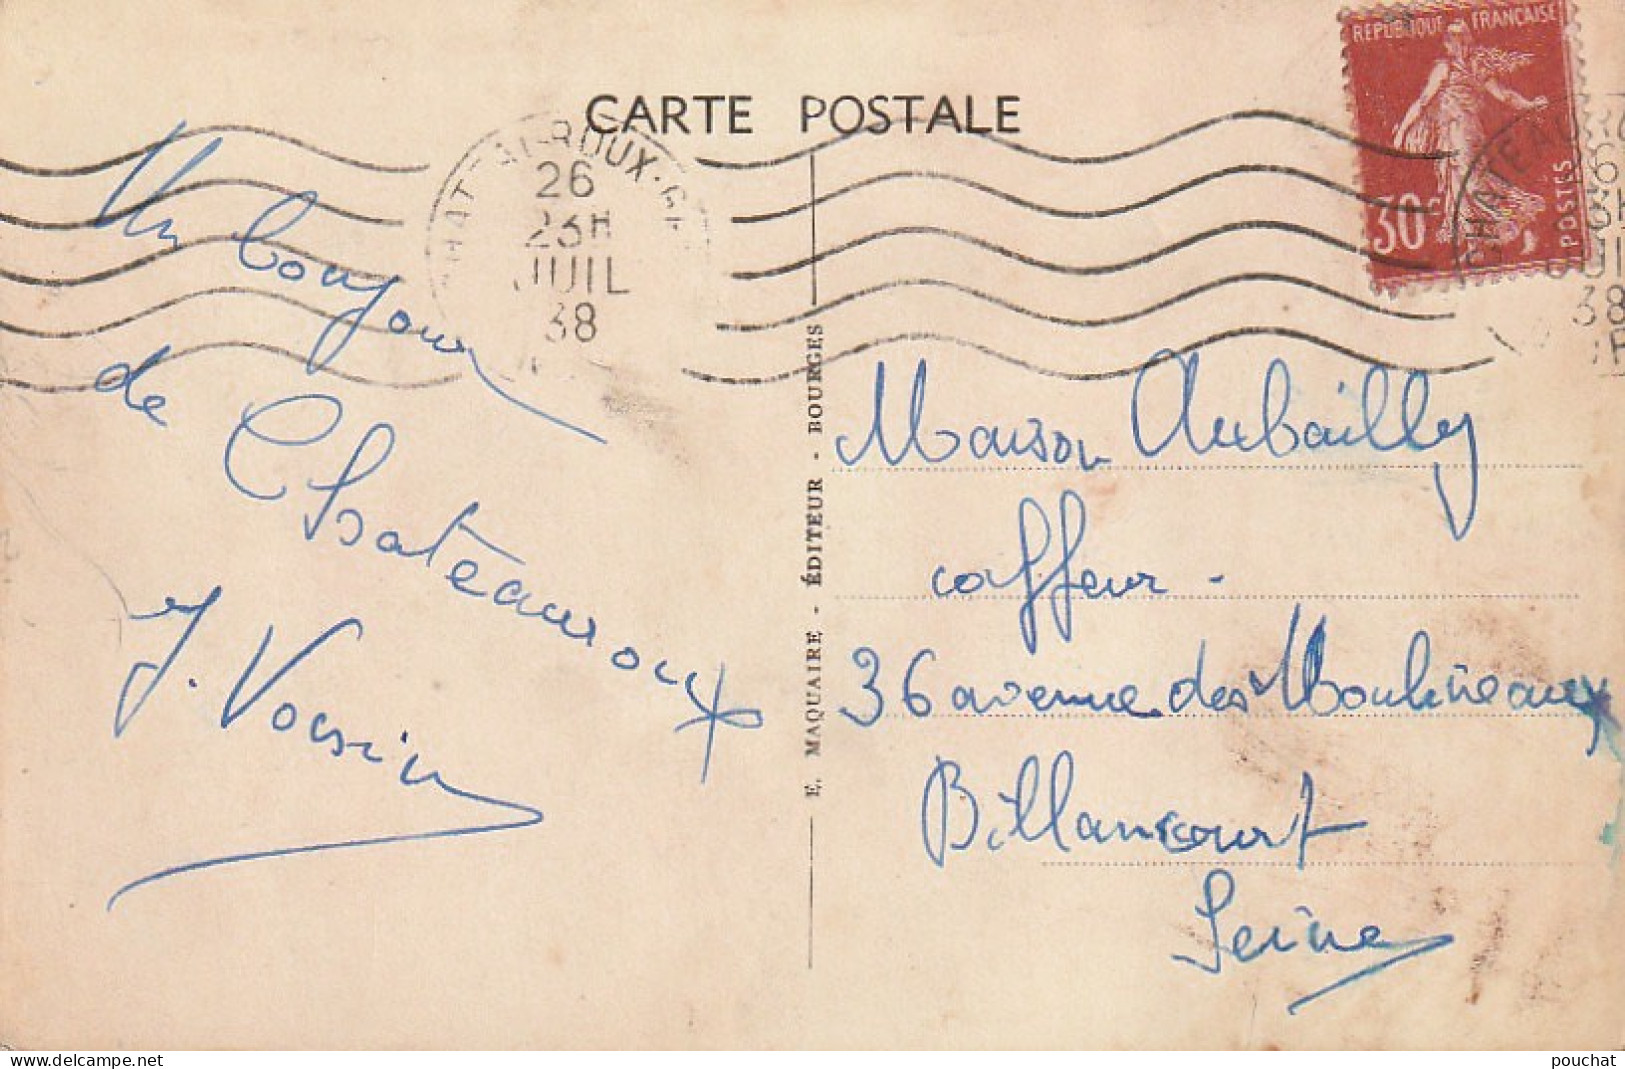 CARTE POSTALE
REPUBLIQUE FRANÇAISE
30c
POSTES
CHATEAUROUX
26
23H
JUIL
38
Un bonjour
de
Chateauroux
J. Voisin
E. MAQUAIRE - ÉDITEUR - BOURGES
Maison Aubailly
coiffeur -
36 avenue des Moulineaux
Billancourt
Seine
delcampe.net
pouchat